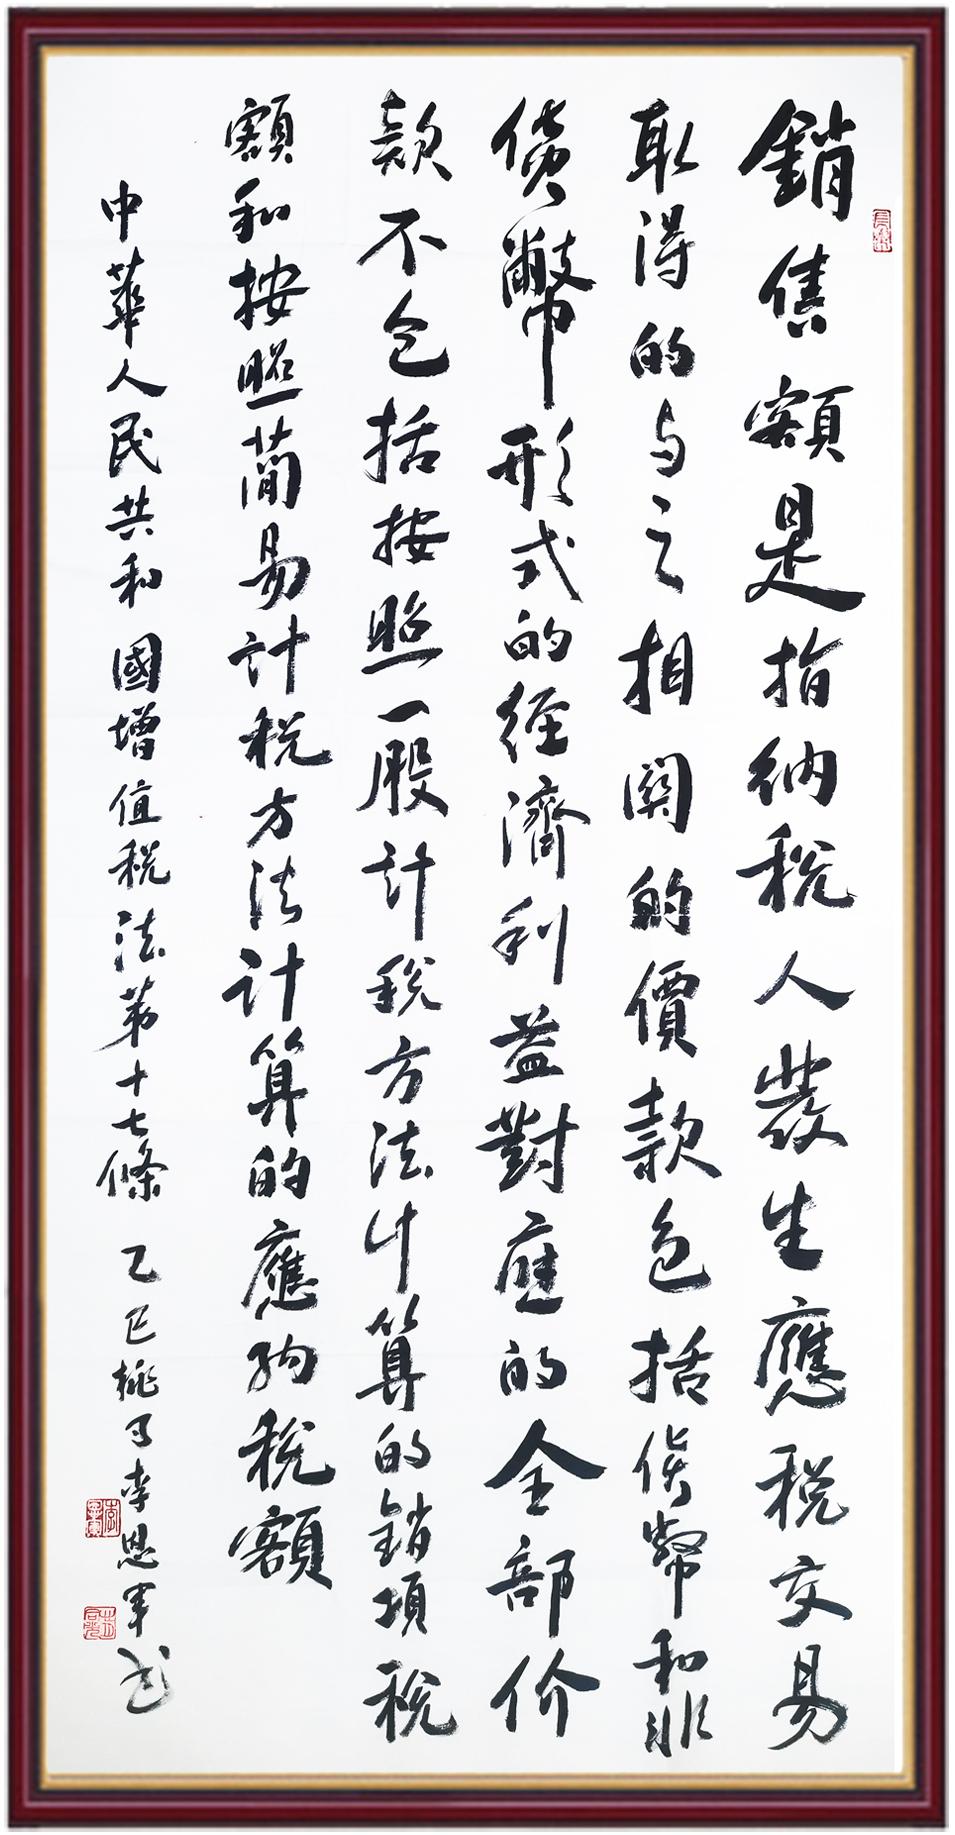 銷售額是指納稅人發生應稅交易
取得的与之相関的價款包括貨幣和非
貨幣形式的經濟利益對應的全部价
款不包括按照一般計稅方法计算的銷項稅
額和按照簡易計稅方法計算的應納稅額
中華人民共和國增值稅法第十七條 乙巳桃月李恩軍書